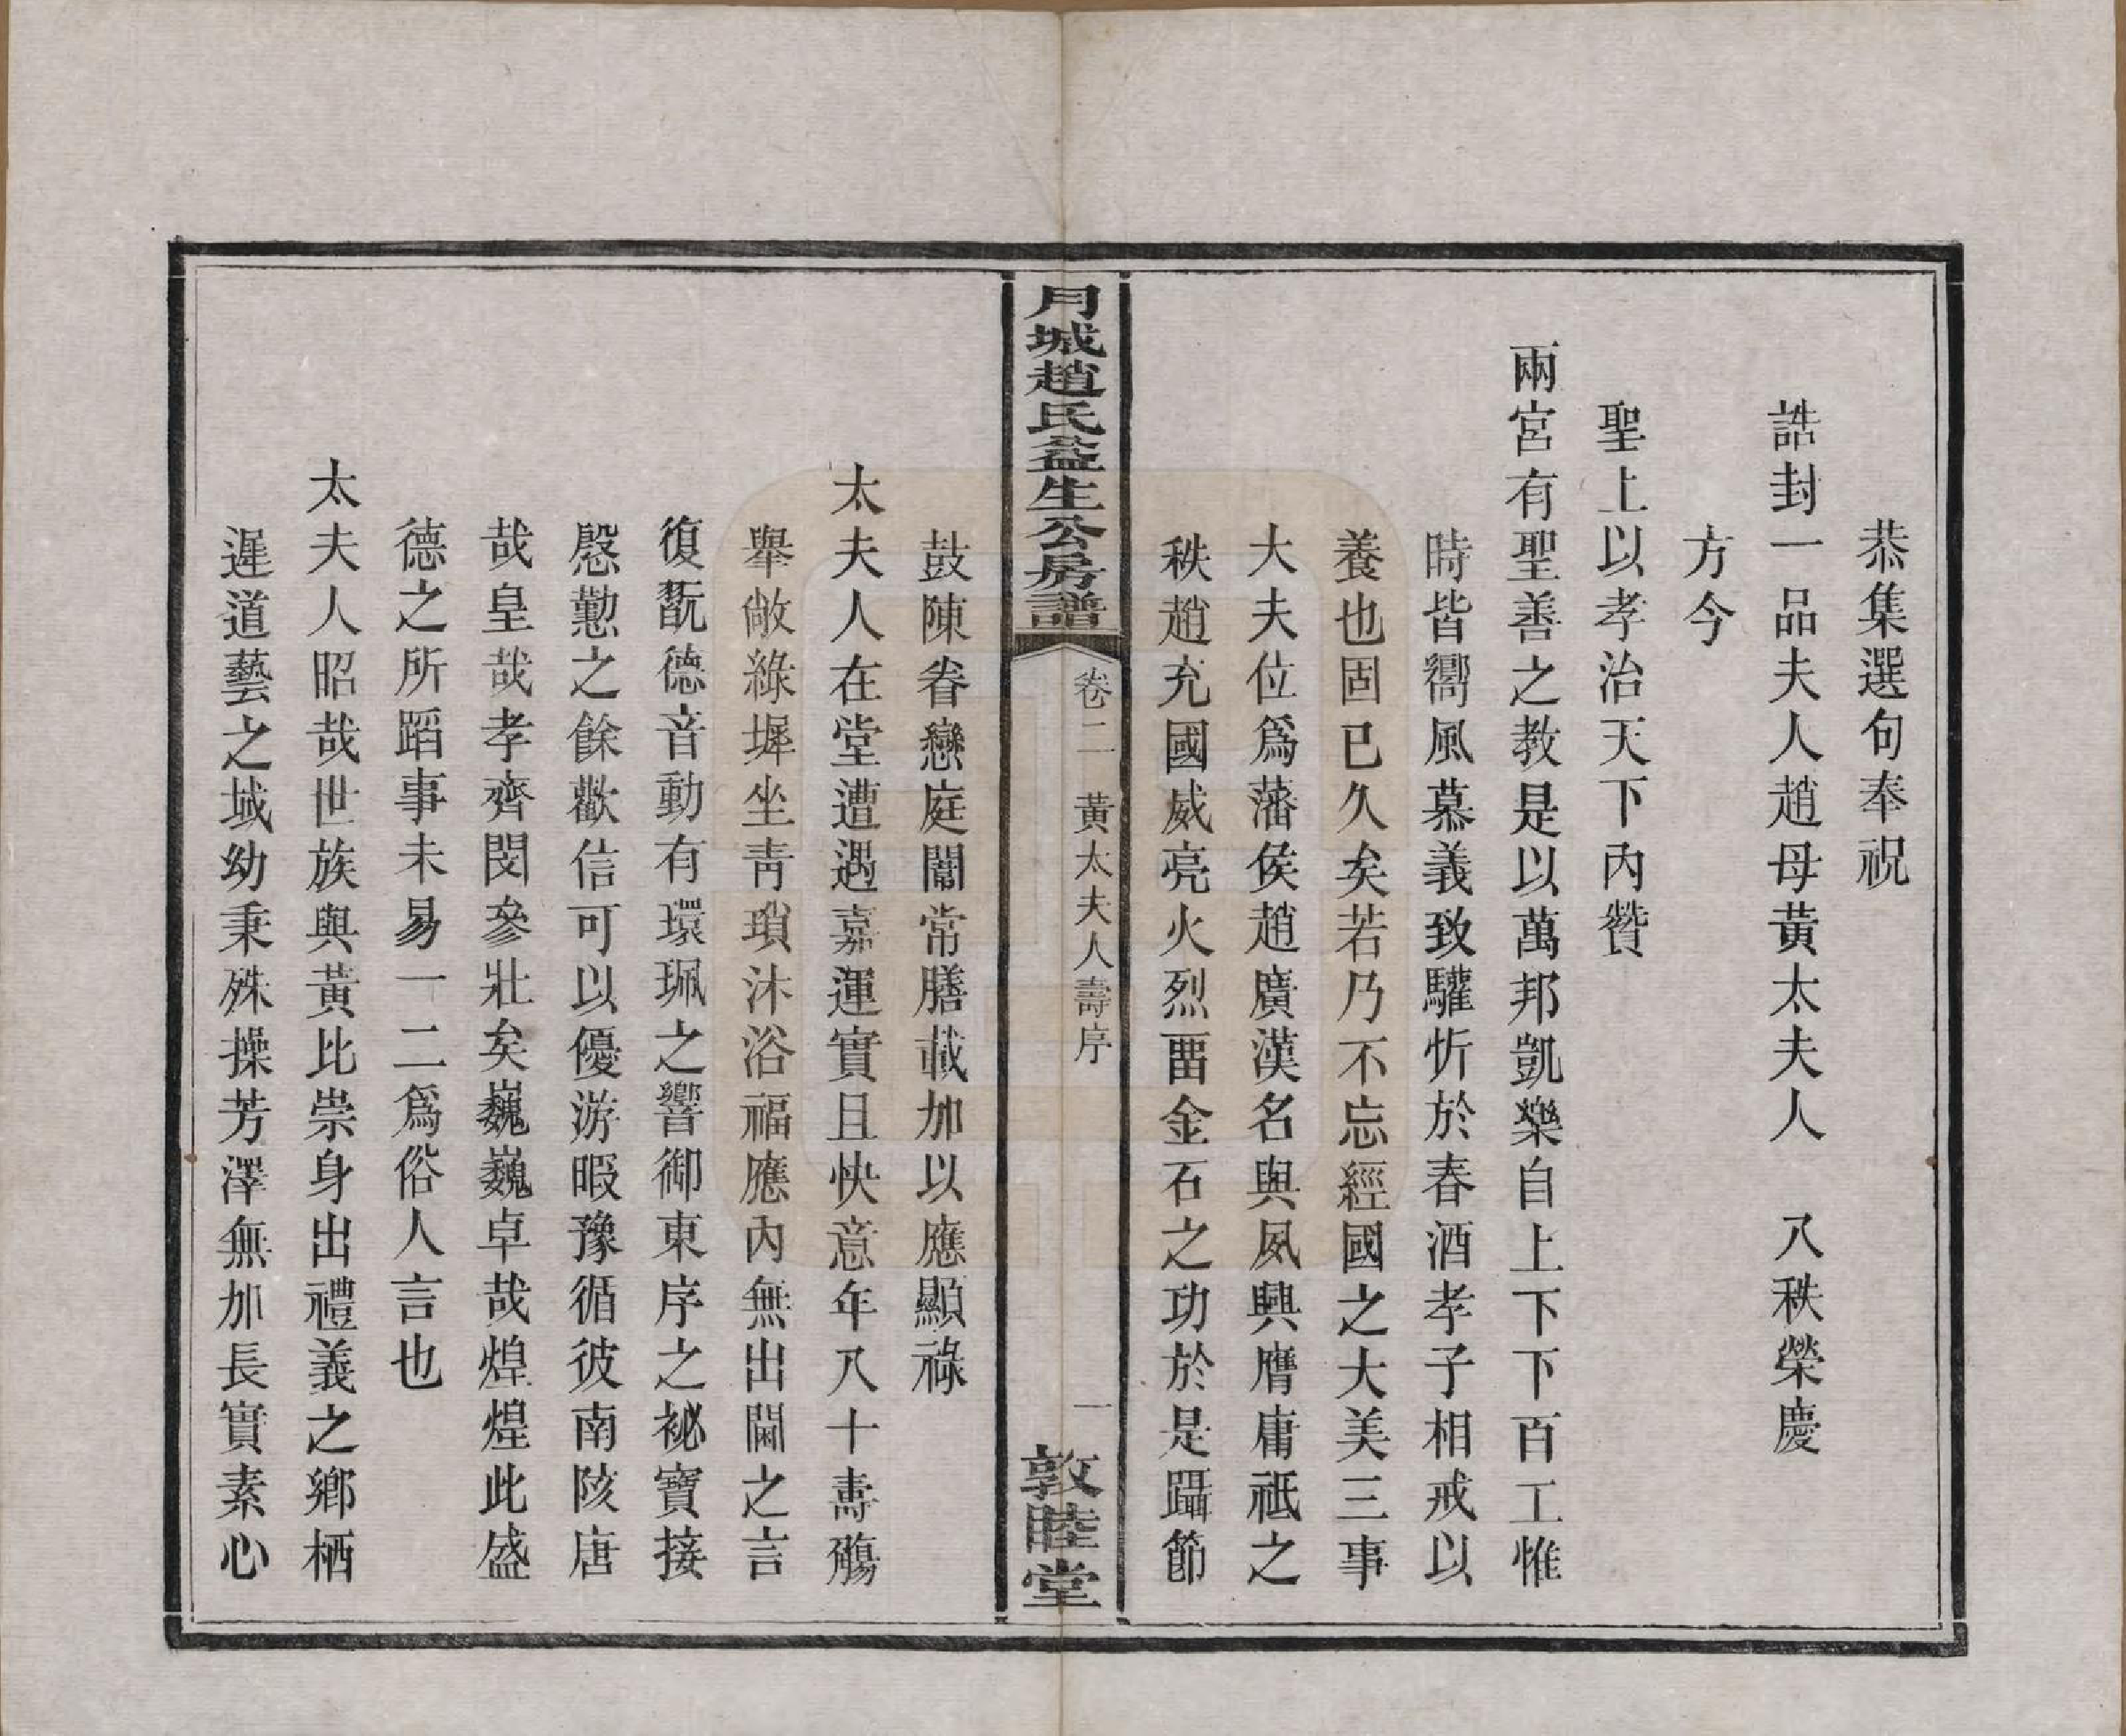 恭集選句奉祝
誥封一品夫人趙母黃太夫人　八秩榮慶
方今
聖上以孝治天下內贊
兩宮有聖善之教是以萬邦凱樂自上下下百工惟
時皆嚮風慕義致驩忻於春酒孝子相戒以
養也固已久矣若乃不忘經國之大美三事
大夫位爲藩侯趙廣漢名與夙興膺庸祗之
秩趙充國威亮火烈畱金石之功於是躡節
月城趙氏益生公房譜
卷二　黃太夫人壽序
一
敦睦堂
鼓陳眷戀庭闈常膳載加以應顯祿
太夫人在堂遭遇嘉運實且快意年八十壽殤
舉敞綠墀坐青瑣沐浴福應內無出閫之言
復翫德音動有環珮之響御東序之祕寶接
慇懃之餘歡信可以優游暇豫循彼南陔唐
哉皇哉孝齊閔參壯矣巍巍卓哉煌煌此盛
德之所蹈事未易一二爲俗人言也
太夫人昭哉世族與黃比崇身出禮義之鄉栖
遲道藝之域幼秉殊操芳澤無加長實素心